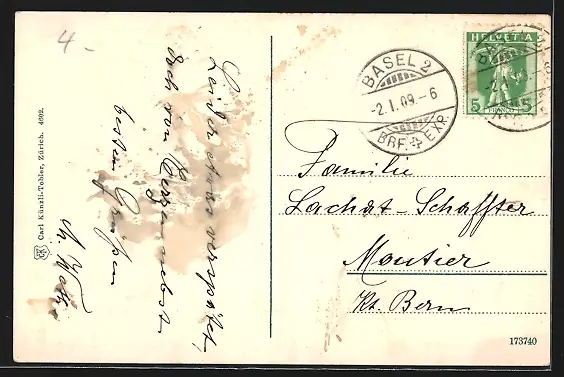 4 -
Leider etwas verspätet,
doch von Herzen nebst
besten Grüssen
Carl Künzli-Tobler, Zürich. 4692.
BASEL 2
-2.I.09.-6
BRF. EXP.
HELVETIA
5 5
FRANCO
Familie
Lachat-Schaffter
Moutier
Kt. Bern
173740